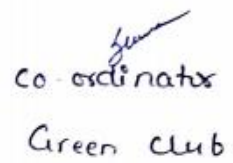 Co-ordinator
Green Club